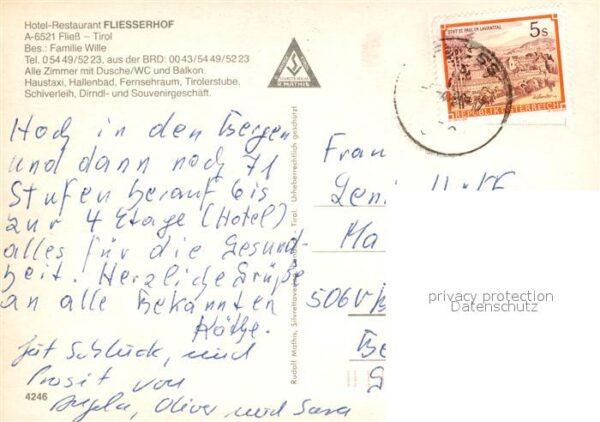 Hotel-Restaurant FLIESSERHOF
A-6521 Fließ – Tirol
Bes.: Familie Wille
Tel. 0 54 49/52 23, aus der BRD: 00 43/54 49/52 23
Alle Zimmer mit Dusche/WC und Balkon.
Haustaxi, Hallenbad, Fernsehraum, Tirolerstube,
Schiverleih, Dirndl- und Souvenirgeschäft.
R. MATHIS
5s
STIFT ST. PAUL IM LAVANTTAL
REPUBLIK ÖSTERREICH
Hoch in den Bergen
und dann noch 71
Stufen herauf bis
zur 4 Etage (Hotel)
alles für die Gesund-
heit. Herzliche Grüße
an alle Bekannten
Käthe.
Gut Schluck, und
Prosit von
Angela, Oliver und Sara
4246
Rudolf Mathis, Silvrettaverlag, Tirol. Urheberrechtlich geschützt
Frau
Leni
Ma
506
Be
privacy protection
Datenschutz